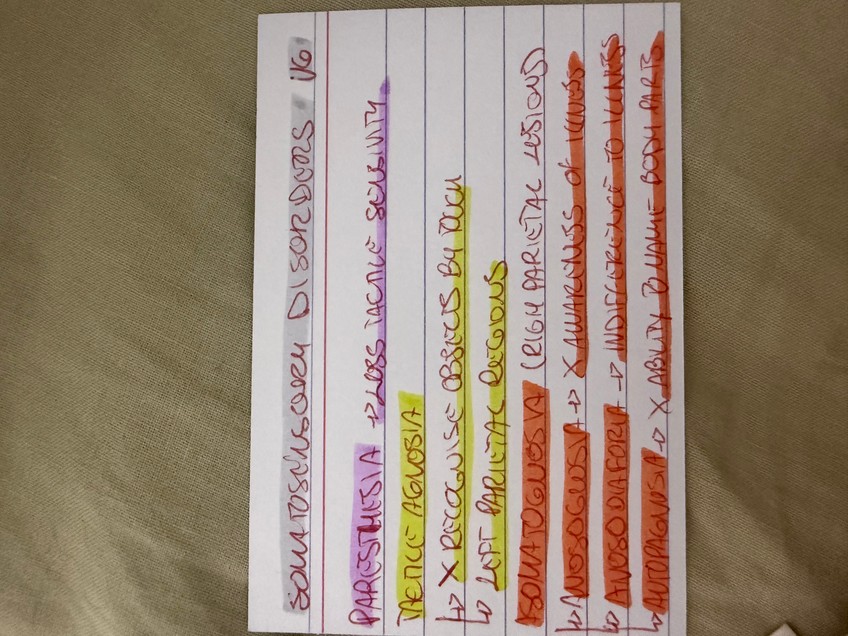 SOMATOSENSORY DISORDERS · V6
PARIESTHESIA → LOSS TACTILE SENSIVITY
TACTILE AGNOSIA
↳ X RECOGNISE OBJECTS BY TOUCH
↳ LEFT PARIETAL REGIONS
ASOMATOGNOSIA (RIGH PARIETAL LESIONS)
↳ ANOSOGNOSIA → X AWARENESS OF ILLNESS
↳ ANOSODIAFORIA → INDIFFERENCE TO ILLNESS
↳ AUTOPAGNOSIA → X ABILITY TO NAME BODY PARTS